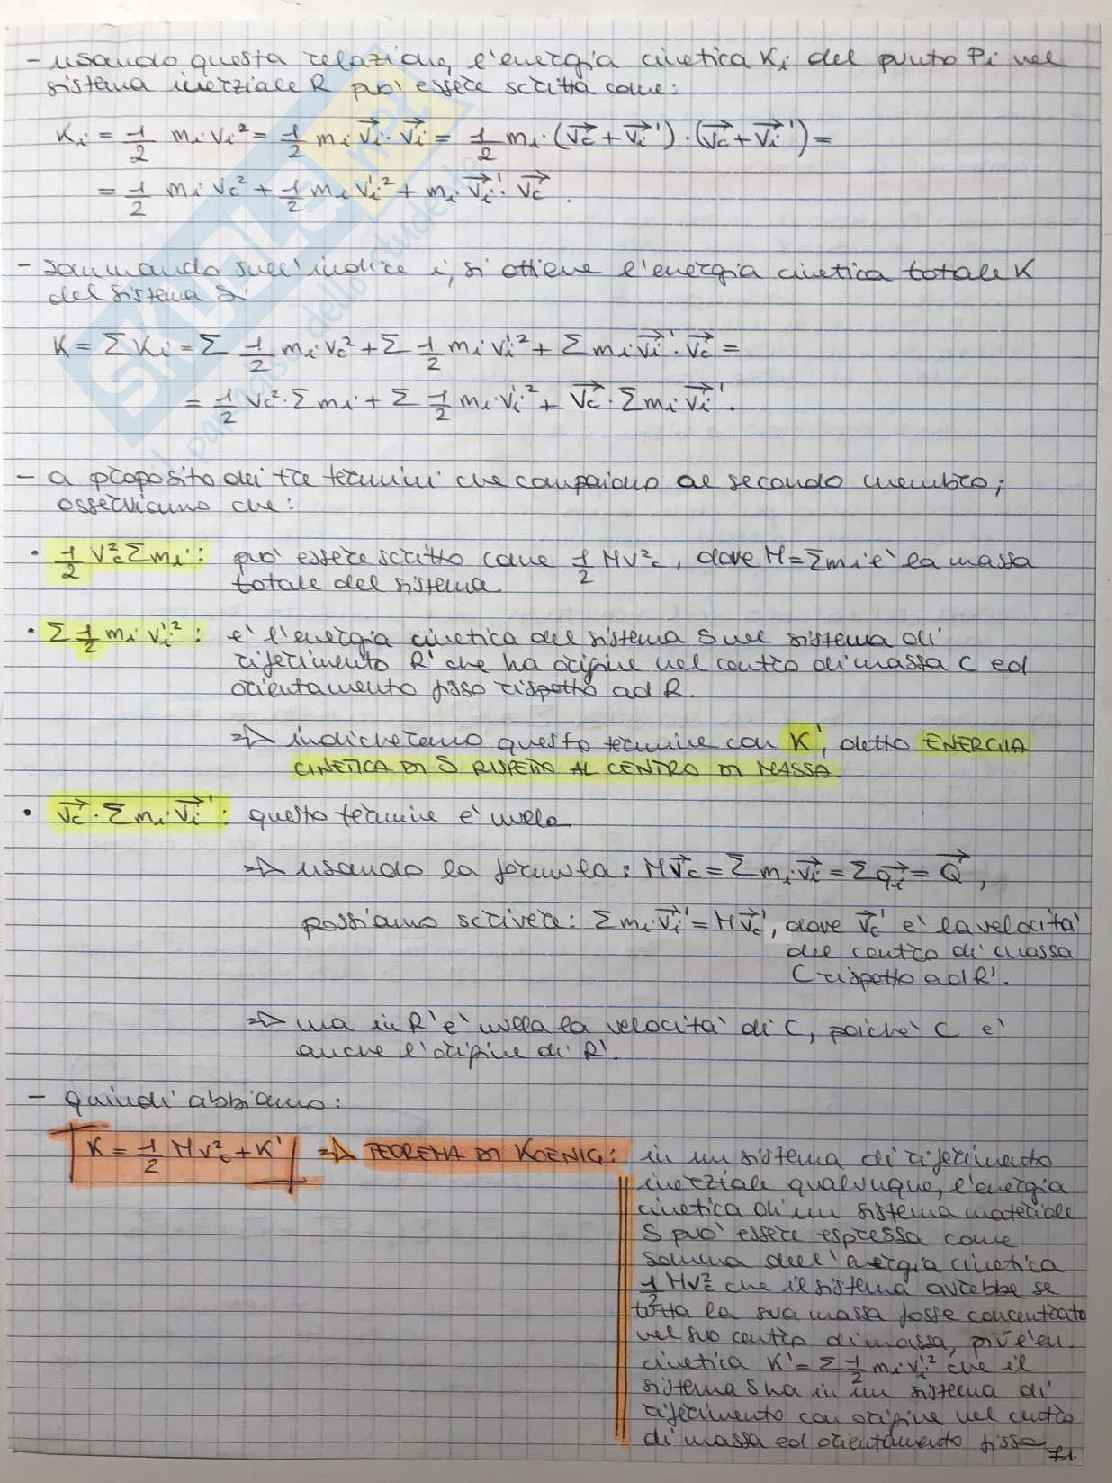 - usando questa relazione, l'energia cinetica Ki del punto Pi nel
sistema inerziale R può essere scritta come:
Ki = 1/2 mi·vi² = 1/2 mi v⃗i · v⃗i = 1/2 mi·(v⃗c + v⃗i')·(v⃗c + v⃗i') =
= 1/2 mi·vc² + 1/2 mi vi'² + mi·v⃗i'·v⃗c.
- sommando sull'indice i, si ottiene l'energia cinetica totale K
del sistema S
K = ΣKi = Σ 1/2 mi·vc² + Σ 1/2 mi vi'² + Σ mi v⃗i'·v⃗c =
= 1/2 vc²·Σmi + Σ 1/2 mi·vi'² + v⃗c·Σmi·v⃗i'.
- a proposito dei tre termini che compaiono al secondo membro,
osserviamo che:
• 1/2 vc² Σmi: può essere scritto come 1/2 Mv²c, dove M=Σmi è la massa
totale del sistema.
• Σ 1/2 mi vi'²: è l'energia cinetica del sistema S nel sistema di
riferimento R' che ha origine nel centro di massa C ed
orientamento fisso rispetto ad R.
=> indicheremo questo termine con K', detto ENERGIA
CINETICA DI S RISPETTO AL CENTRO DI MASSA.
• v⃗c·Σmi·v⃗i': questo termine è nullo
=> usando la formula: Mv⃗c = Σmi·v⃗i = Σq⃗i = Q⃗,
possiamo scrivere: Σmi·v⃗i' = Mv⃗c', dove v⃗c' è la velocità
del centro di massa
C rispetto ad R'.
=> ma in R' è nulla la velocità di C, poiché C è
anche l'origine di R'.
- quindi abbiamo:
K = 1/2 Mv²c + K' => TEOREMA DI KOENIG: in un sistema di riferimento
inerziale qualunque, l'energia
cinetica di un sistema materiale
S può essere espressa come
somma dell'energia cinetica
1/2 Mvc² che il sistema avrebbe se
tutta la sua massa fosse concentrata
nel suo centro di massa, più l'en.
cinetica K' = Σ 1/2 mi vi'² che il
sistema S ha in un sistema di
riferimento con origine nel centro
di massa ed orientamento fisso
SKUOLA.net
il paradiso dello studente